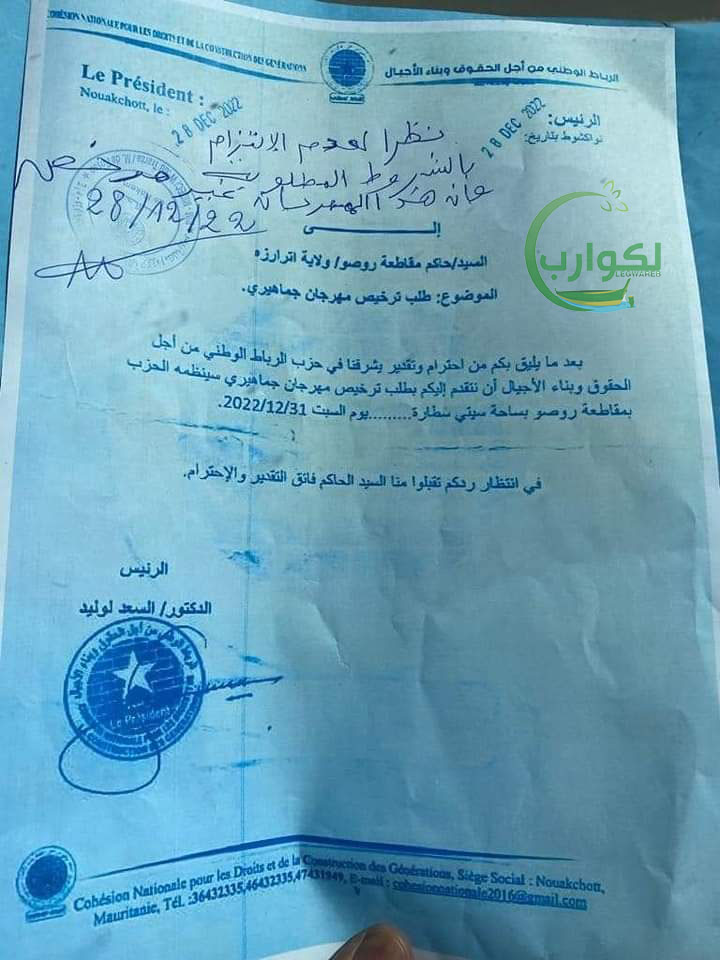 COHÉSION NATIONALE POUR LES DROITS ET DE LA CONSTRUCTION DES GÉNÉRATIONS
الرباط الوطني من أجل الحقوق وبناء الأجيال
Le Président :
Nouakchott, le :
28 DEC 2022
الرئيس:
نواكشوط بتاريخ:
28 DEC 2022
نظرا لعدم الالتزام
بالشروط المطلوبة
فإن هذا المهرجان غير مرخص
28/12/22
إلــــى
السيد/حاكم مقاطعة روصو/ ولاية اترارزه
الموضوع: طلب ترخيص مهرجان جماهيري.
لكوارب
LEGWAREB
بعد ما يليق بكم من احترام وتقدير يشرفنا في حزب الرباط الوطني من أجل
الحقوق وبناء الأجيال أن نتقدم إليكم بطلب ترخيص مهرجان جماهيري سينظمه الحزب
بمقاطعة روصو بساحة سيتي سطارة.........يوم السبت 2022/12/31.
في انتظار ردكم تقبلوا منا السيد الحاكم فائق التقدير والإحترام.
الرئيس
الدكتور/ السعد لوليد
الرباط الوطني من أجل الحقوق وبناء الأجيال
Le Président
Cohésion Nationale pour les Droits et de la Construction des Générations, Siège Social : Nouakchott,
Mauritanie, Tél. :36432335,46432335,47431949, E-mail : cohesionnationale2016@gmail.com